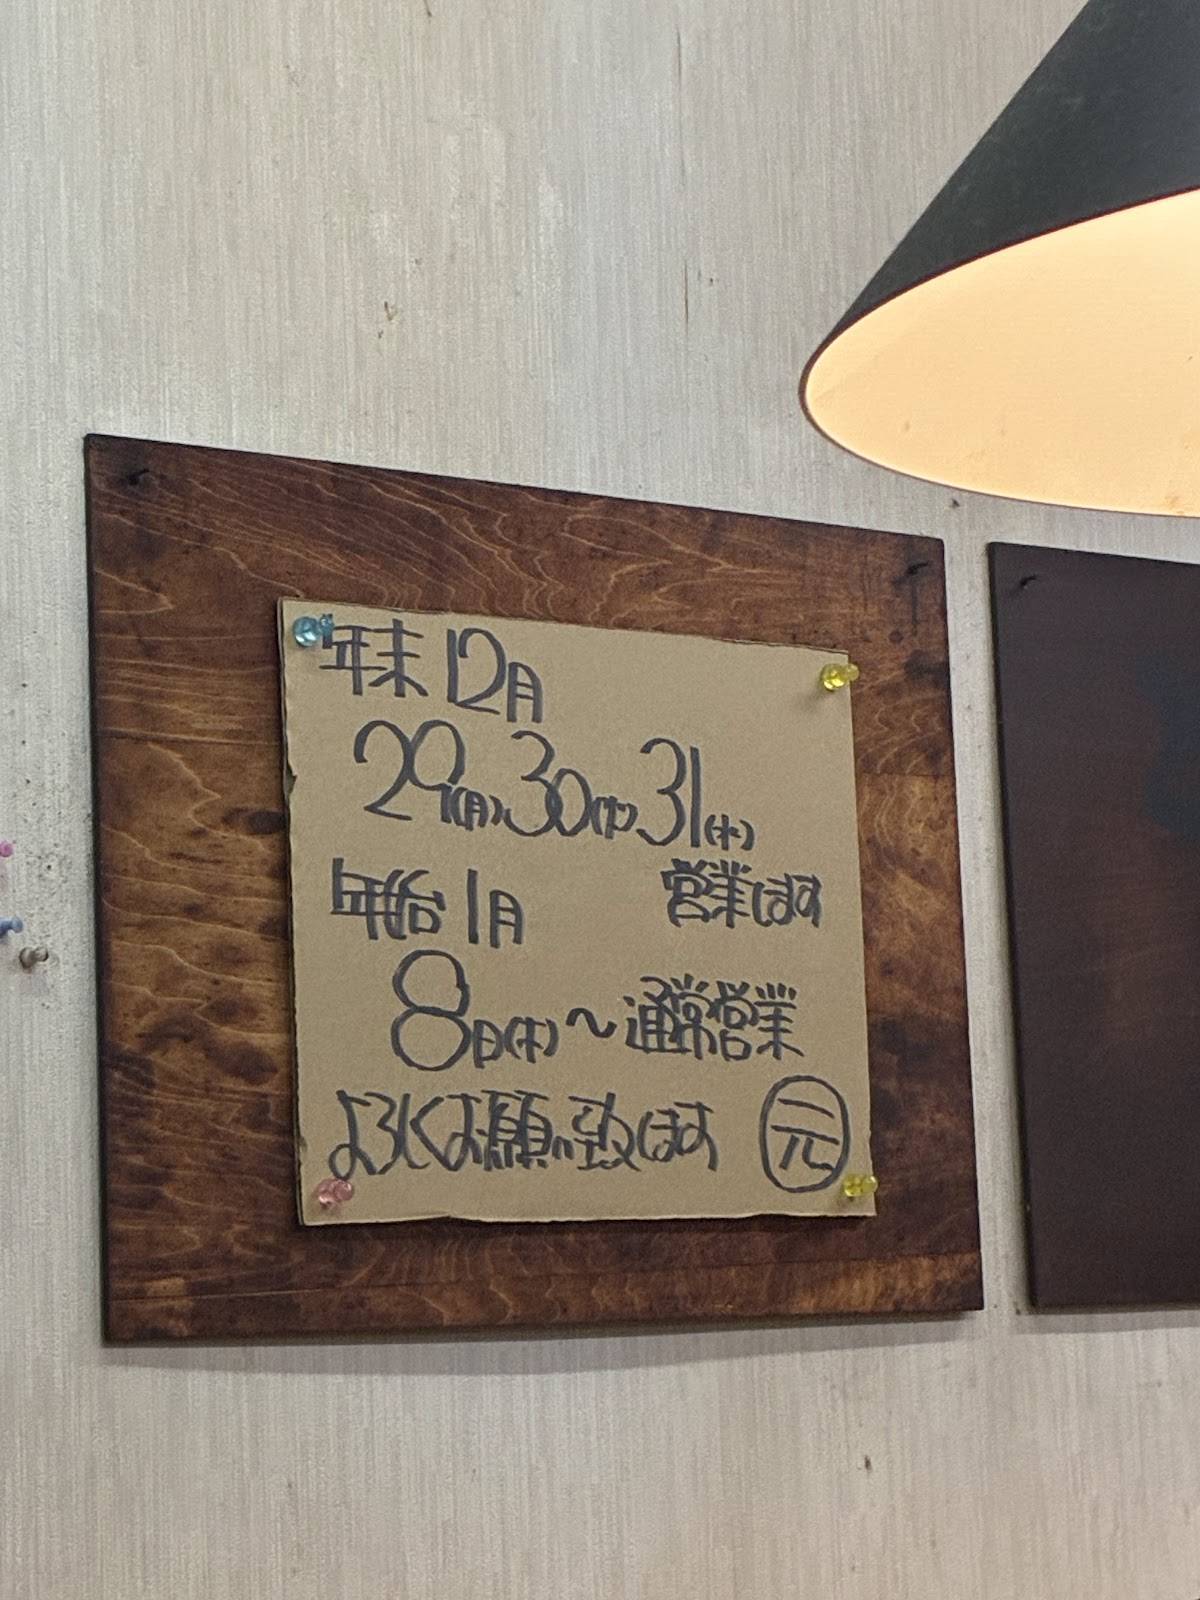 年末 12月
29(月)30(火)31(水)
営業します
年始 1月
8日(木)～通常営業
よろしくお願い致します 元